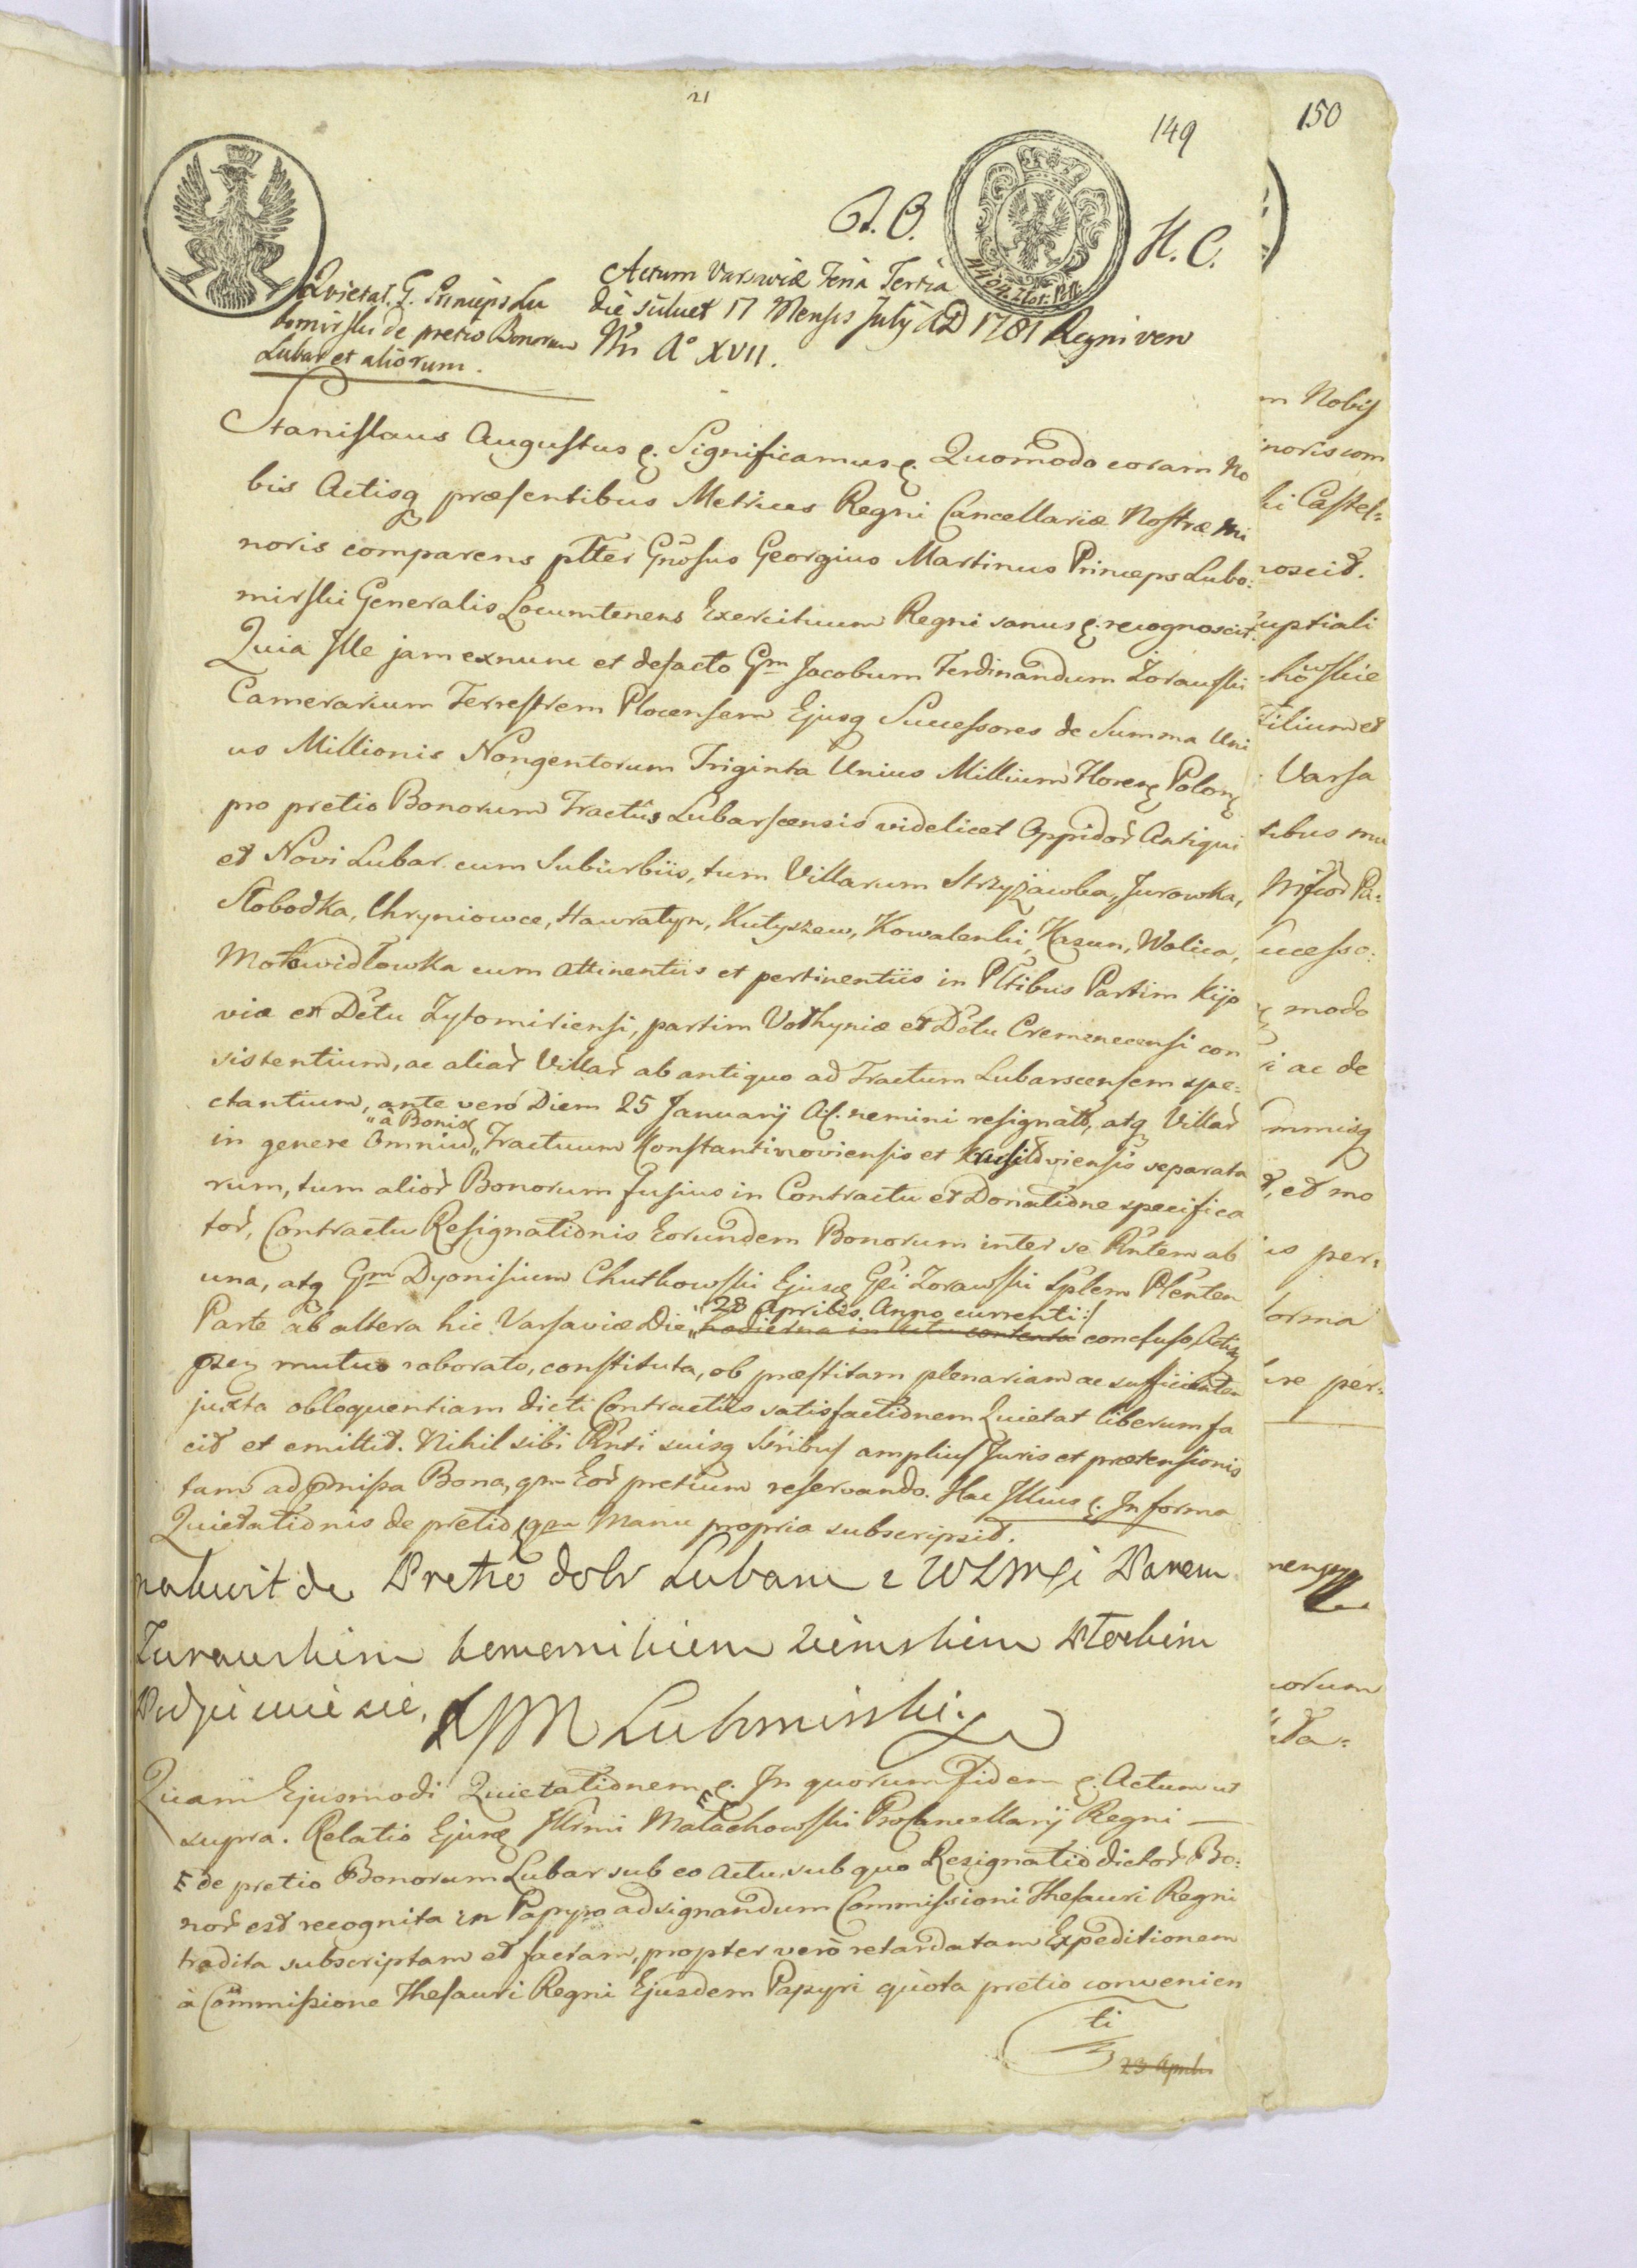 21
149
150
A. O.
H. C.
4 Gr. Zlot: Pol:
Quietat. G. Princeps Lu
bomirski de pretio Bonorum
Lubar et aliorum.
Actum Varsaviæ Feria Tertia
die scilicet 17 Mensis July AD 1781 Regni vero
Nri A° XVII.
Stanislaus Augustus &. Significamus &. Quomodo coram No
bis Actisq præsentibus Metrices Regni Cancellariæ Nostræ Mi
noris comparens pltter Gnosus Georgius Martinus Princeps Lubo:
mirski Generalis Locumtenens Exercituum Regni sanus &. recognoscit.
Quia Ille jam exnunc et defacto Gm Jacobum Ferdinandum Zorawski
Camerarium Terrestrem Plocensem Ejusq Successores de Summa Uni
us Millionis Nongentorum Triginta Unius Millium Floren Polon
pro pretio Bonorum Tractûs Lubarscensis videlicet Oppidor Antiqui
et Novi Lubar cum Suburbiis, tum Villarum Strzyżawka, Jurowka,
Słobodka, Chryniowce, Hawratyn, Kutyszew, Kowalenki, Kazun, Wolica,
Motowidłowka cum attinentiis et pertinentiis in Pltibus Partim Kijo
viæ et Dctu Zytomiriensi, partim Volhyniæ et Dctu Cremenecensi con
sistentium, ac aliar Villar ab antiquo ad Tractum Lubarscensem spe:
ctantium, ante verò Diem 25 January Af. nemini resignat, atq Villar
"à Bonis
in genere Omniu" Tractuum Konstantinoviensis et separata
rum, tum alior Bonorum fusius in Contractu et Donatione specifica
tor, Contractu Resignationis Eorundem Bonorum inter se Rntem ab
una, atq Gm Dyonisium Chutkowski Ejusq Gsi Zorawski Splem Plenten
28 Aprilis Anno currenti:/
Parte ab altera hic Varsaviæ Die" hodierna in Actu contenta concluso, Actisq
mutuo roborato, constituta, ob præstitam plenariam ac sufficienten
juxta obloquentiam dicti Contractûs satisfactionem Quietat liberum fa
cit et emittit. Nihil sibi Rnti suisq Sribus amplius Juris et prætensionis
tam ad pmissa Bona, qm Eor pretium reservando. Hac Illius &. In forma
Quietationis de pretio &. qm Manu propria subscripsit.
de Pretio dobr Lubaru z WZMP Panem
Zurawskim komornikiem ziemskim Płockim
Podpisuie sie, XJM Lubomirski.
Quam Ejusmodi Quietationem &. In quorum fidem &. Actum ut
supra. Relatio Ejusq Illrmi Małachowski ProCancellarij Regni —
E de pretio Bonorum Lubar sub eo actu, sub quo Resignatio dictor Bo:
nor est recognita in Papyro ad signandum Commissioni Thesauri Regni
tradita subscriptam et factam, propter verò retardatam Expeditionem
à Commissione Thesauri Regni Ejusdem Papyri quota pretio convenien
ti
23 Aprilis
m Nobis
noris com
ki Castel:
noscit.
uptiali
chowskie
Filium et
Varsa
tibus mu
ucesso:
modo
i ac de
mmisq
t, et mo
is per:
forma
re per:
orum
ta: